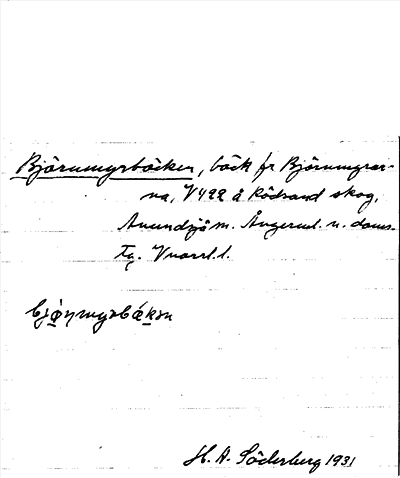 Björnmyrbäcken, bäck fr Björnmyrar-
na, V422 å Rödsand skog,
Anundsjö m. Ångerml. n. doms.
tg. Vnorrl. l.
H. A. Söderberg 1931